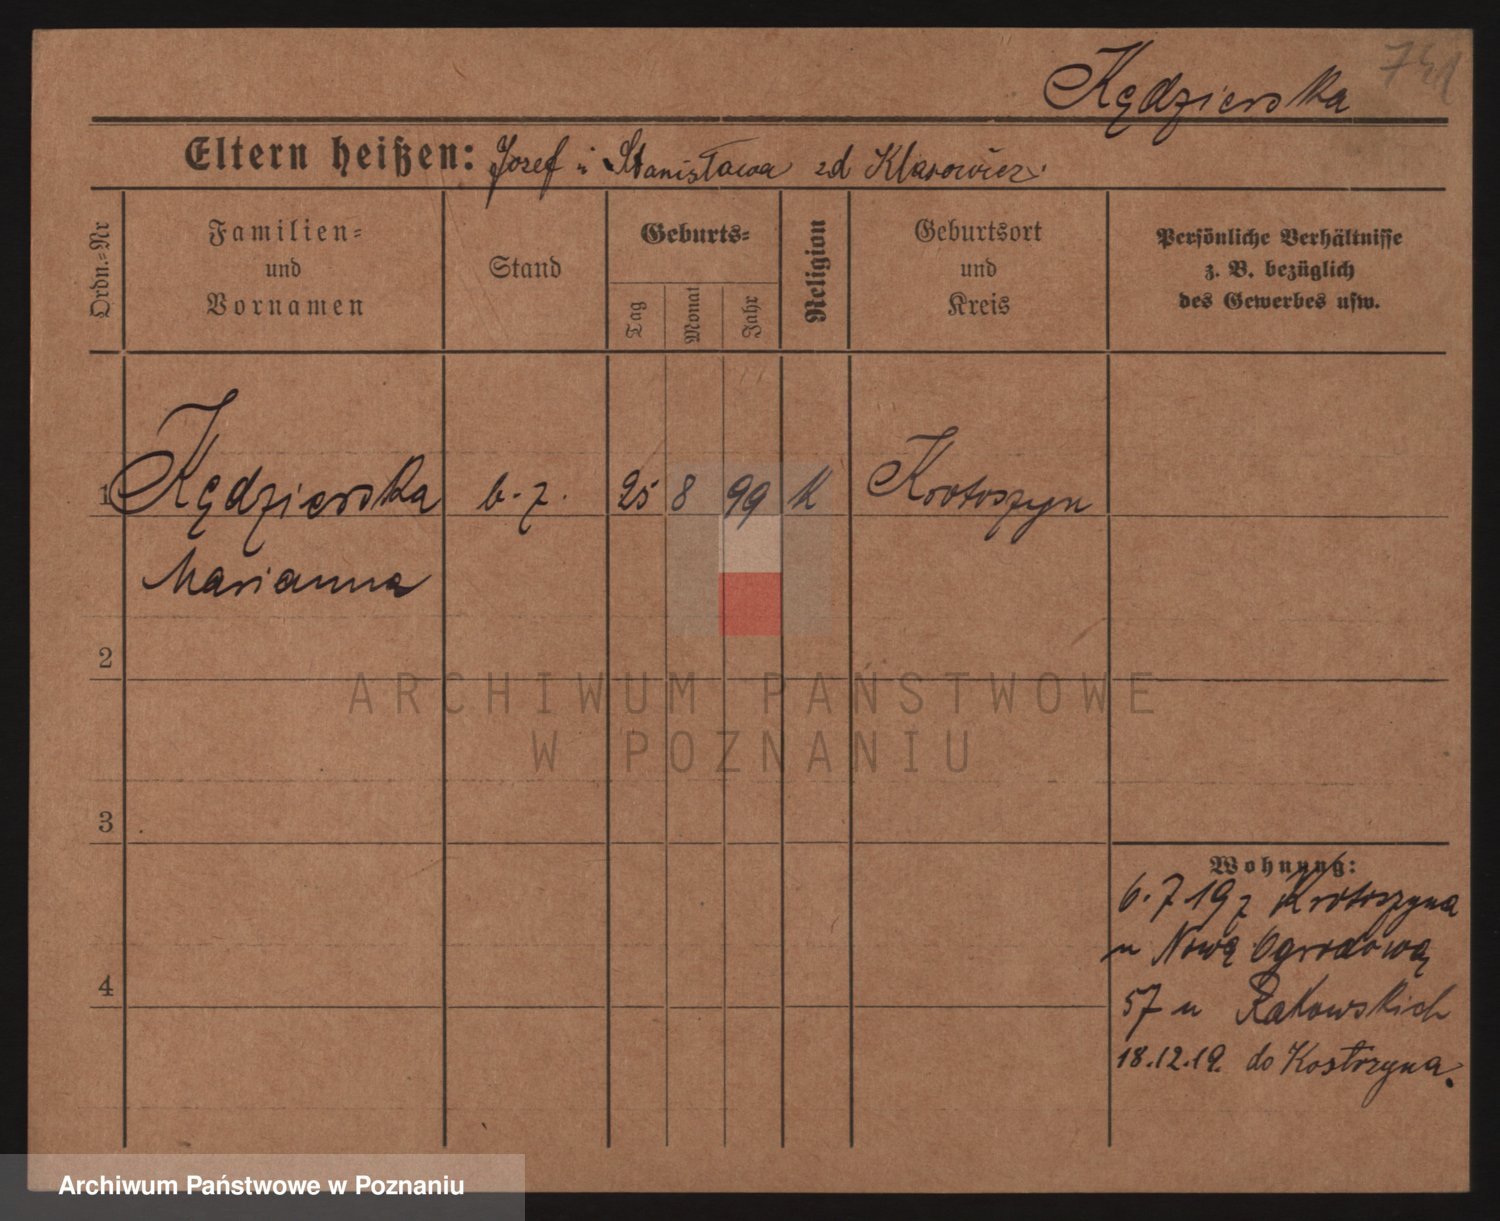 741
Kędzierska
Eltern heißen: Jozef i Stanisława zd Klarowicz.
Ordn.=Nr
Familien=
und
Vornamen
Stand
Geburts=
Tag
Monat
Jahr
Religion
Geburtsort
und
Kreis
Persönliche Verhältnisse
z. B. bezüglich
des Gewerbes usw.
1 Kędzierska b. z. 25 8 99 K Krotoszyn
Marianna
2
ARCHIWUM PAŃSTWOWE
W POZNANIU
3
4
Wohnung:
6.7 19 z Krotoszyna
n Nową Ogrodową
57 u Rakowskich
18.12.19. do Kostrzyna.
Archiwum Państwowe w Poznaniu